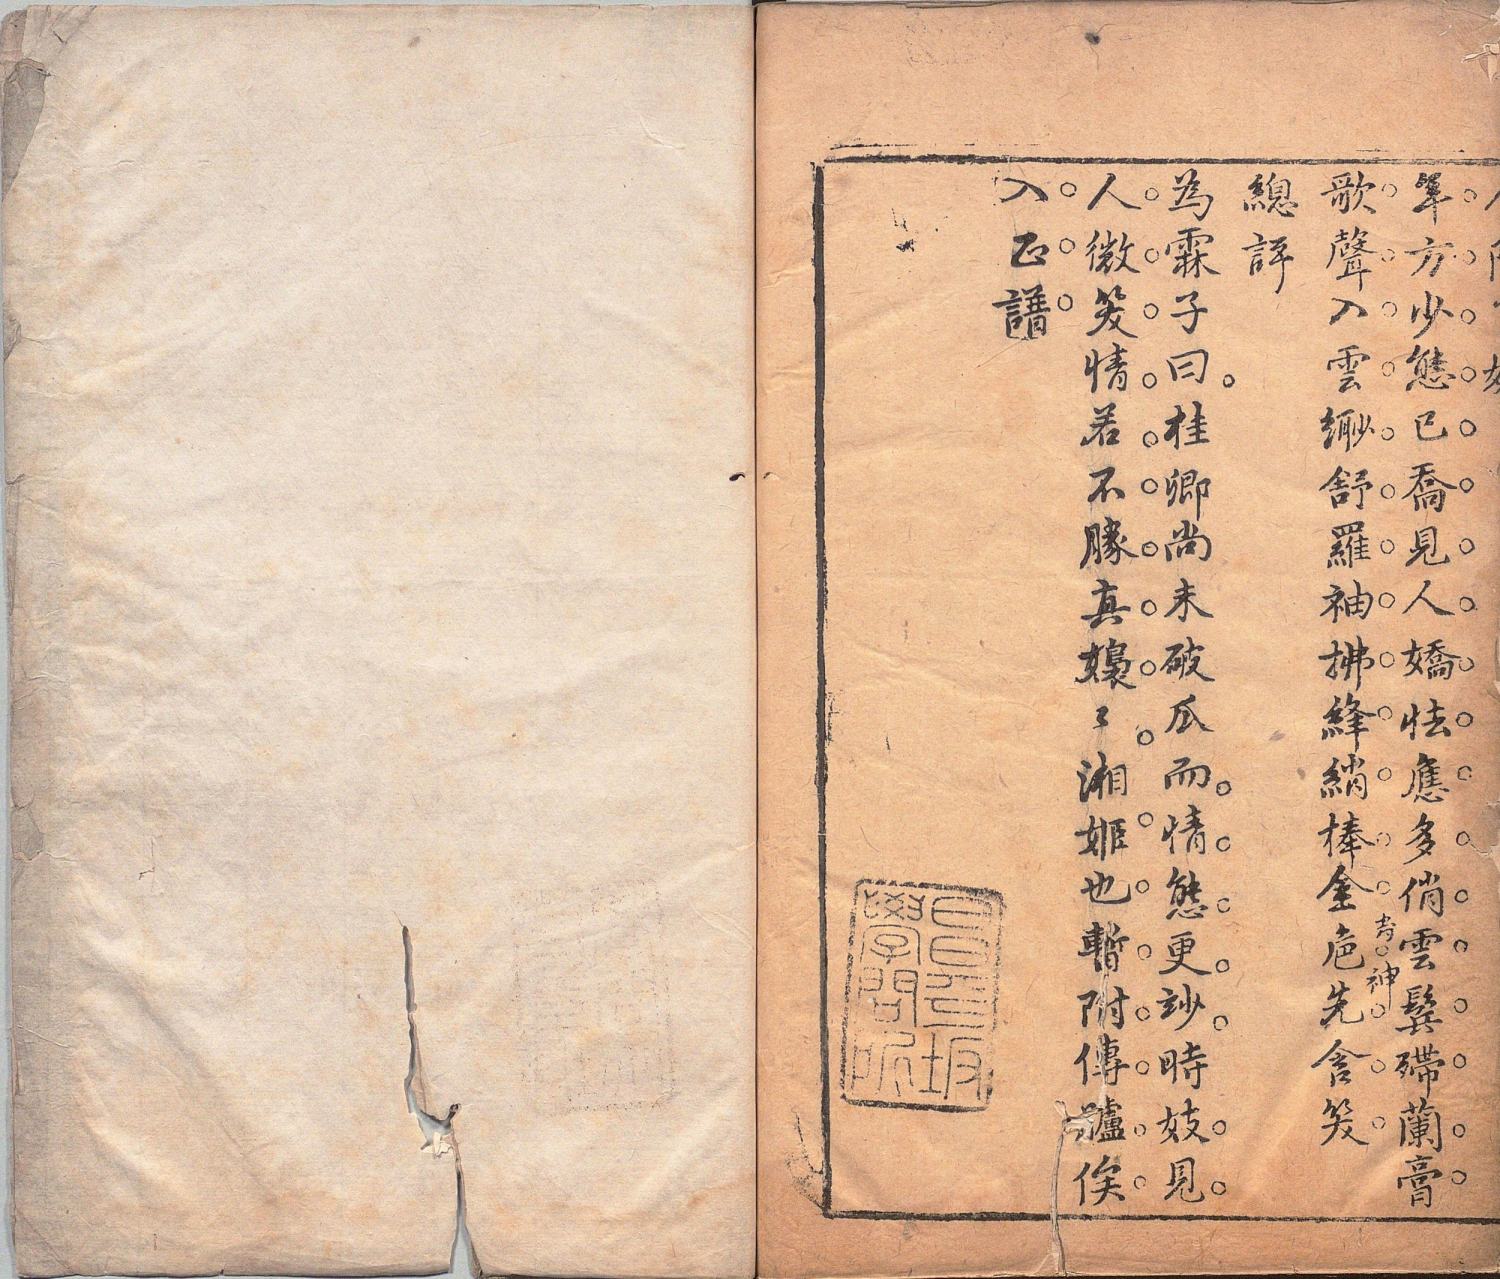 年方少態已喬見人嬌怯應多俏雲鬂殢蘭膏
歌聲入雲緲舒羅袖拂絳綃棒金卮先含笑
神
總評
為霖子曰桂卿尚未破瓜而情態更訬時妓見
人微笑情若不勝真嬝々湘姬也暫附傳臚俟
入正譜
昌平坂
學問所